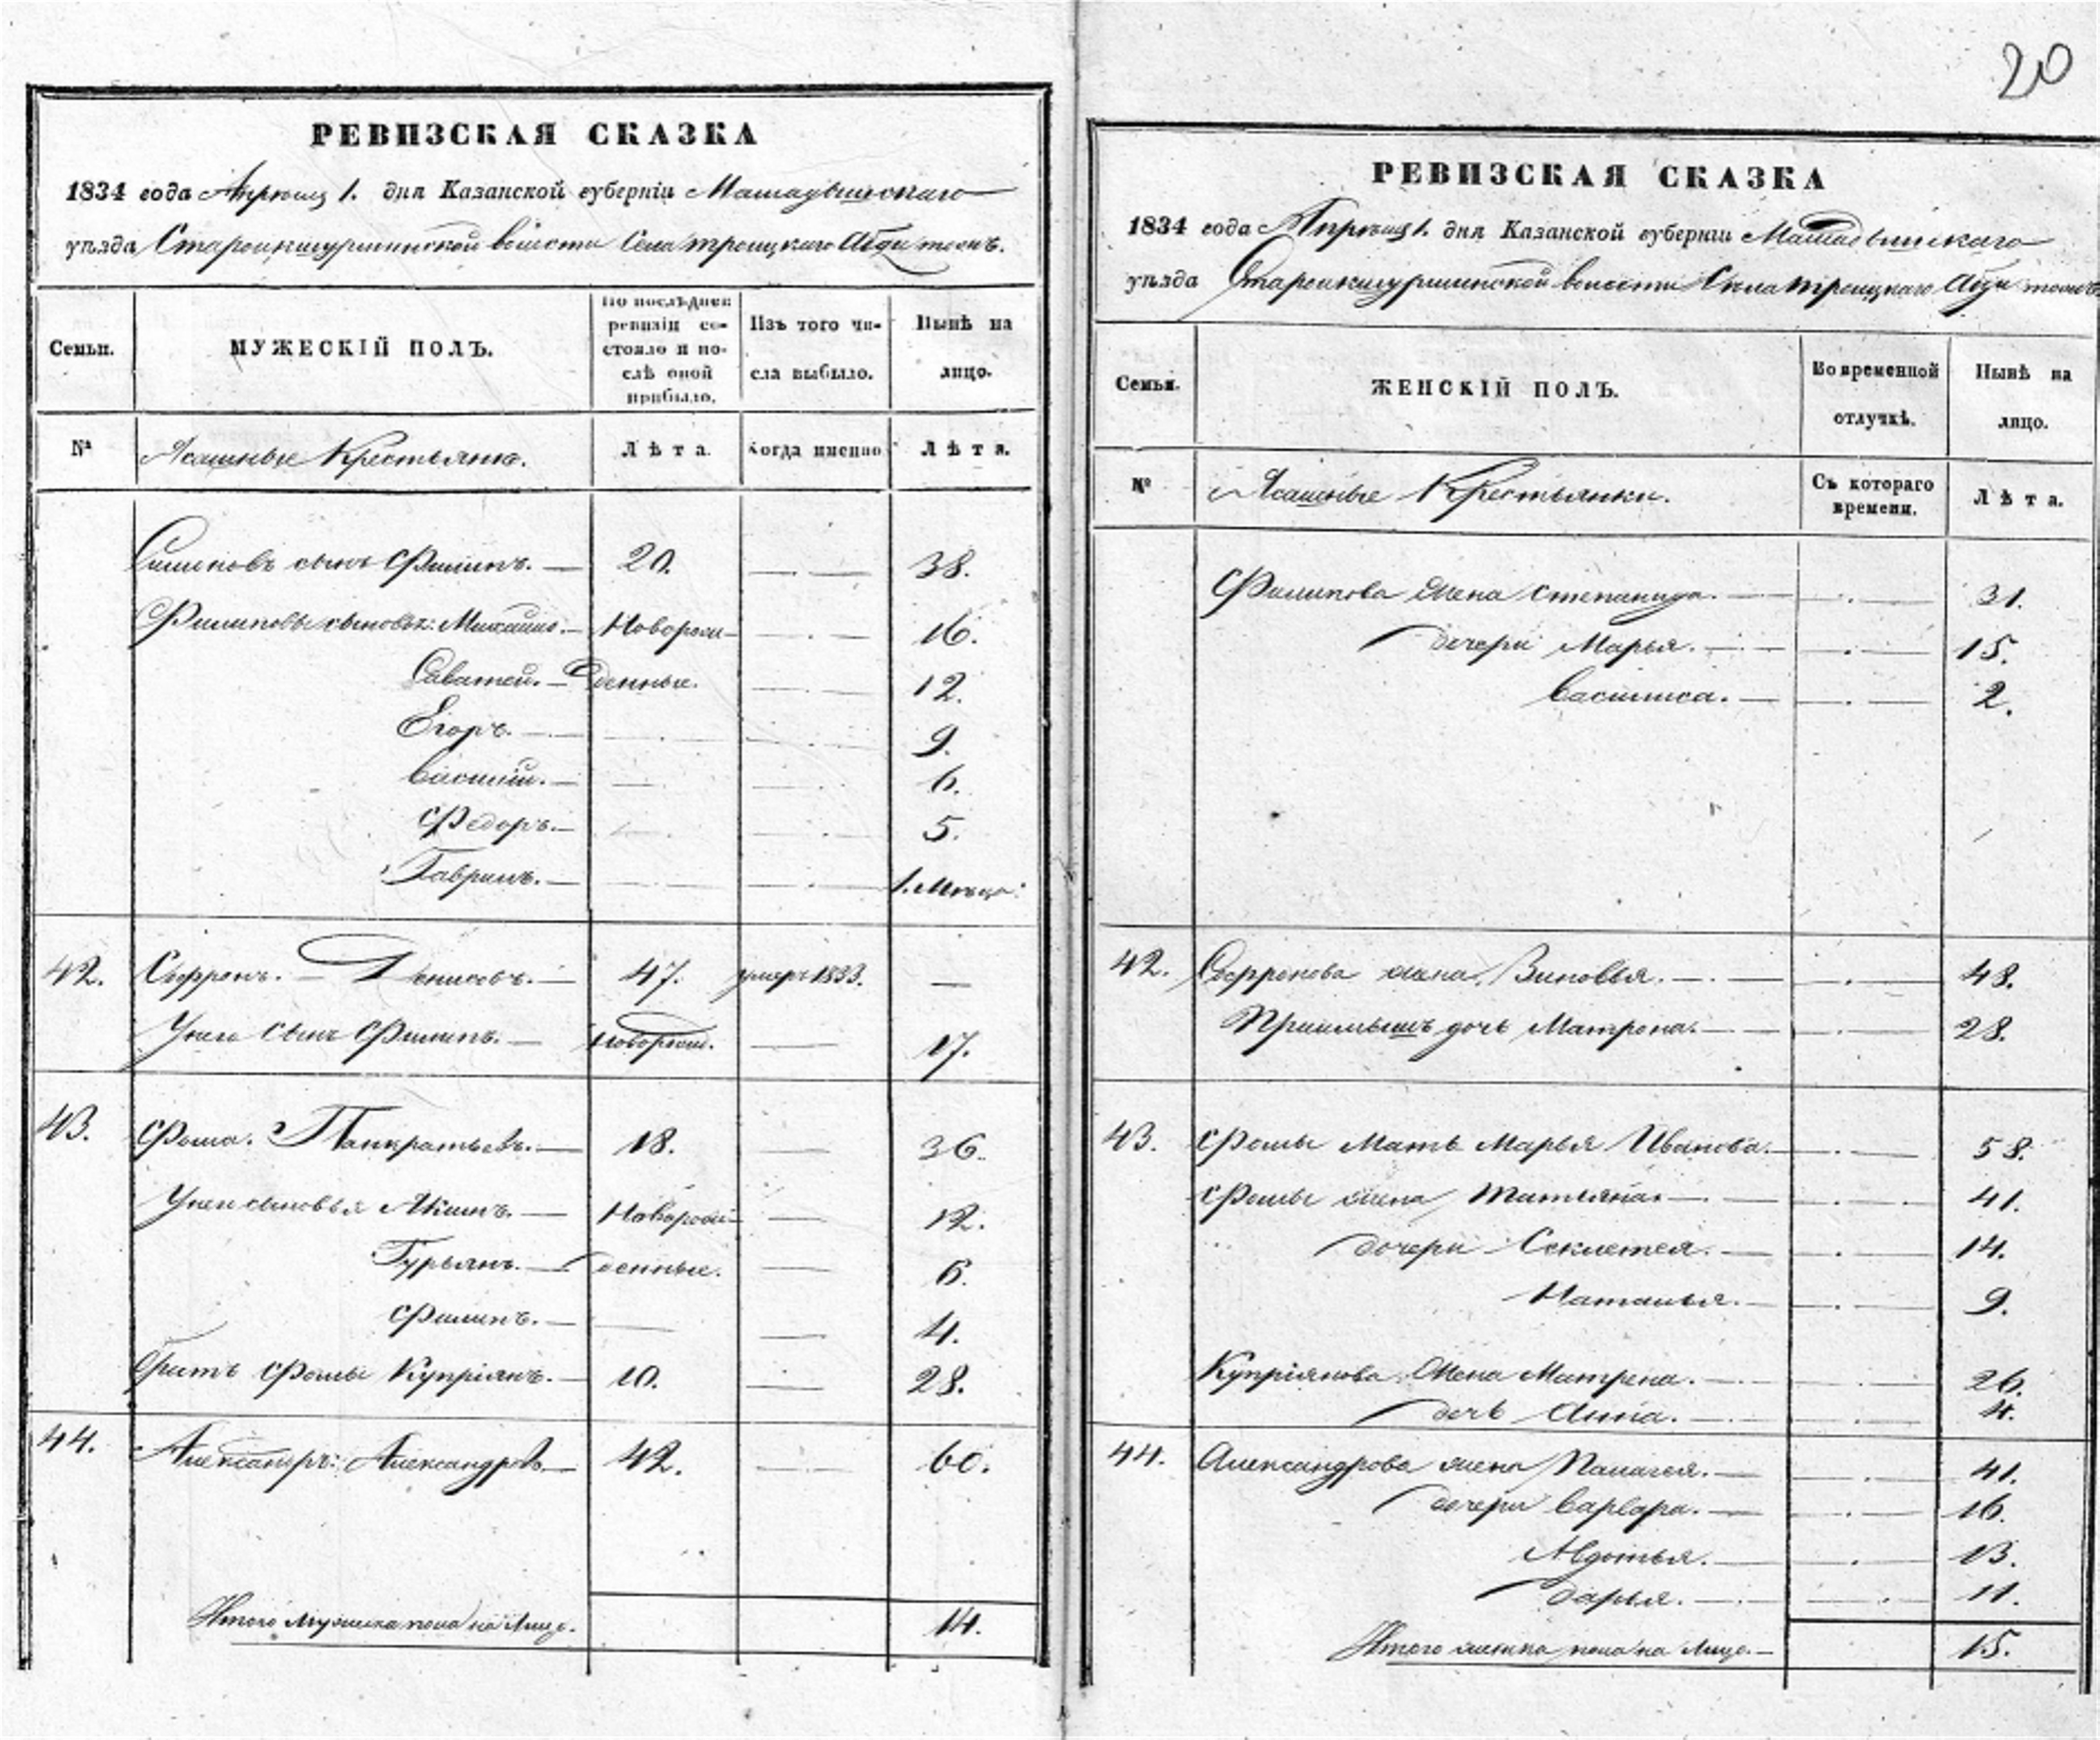 20
РЕВИЗСКАЯ СКАЗКА
1834 года Апрѣля 1. дня Казанской губерніи Мамадышскаго
уѣзда волости Села Троицкаго
Семьи.
МУЖЕСКІЙ ПОЛЪ.
По послѣдней ревизіи состояло и послѣ оной прибыло.
Изъ того числа выбыло.
Нынѣ на лицо.
№
Ясашные Крестьяне.
Лѣта.
Когда именно
Лѣта.
сынъ Филипъ. — 20. — 38.
Филиповы сыновья: Михайло. — Новорож— — 16.
Саватей. — денные. — 12.
Егоръ. — 9.
Василій. — 6.
Федоръ. — 5.
Гаврилъ. — 1. Мѣсяцъ.
42. Софронъ. — Денисовъ. — 47. умеръ 1833. —
У него сынъ Филипъ. — новорожд. — 17.
43. Фома. Панкратьевъ. — 18. — 36.
У него сыновья Якимъ. — Новорож— — 12.
Гурьянъ. — денные. — 6.
Филипъ. — — 4.
Братъ Фомы Купріянъ. — 10. — 28.
44. Александръ: Александровъ. — 42. — 60.
Итого Мужеска пола на Лицо. 14.
РЕВИЗСКАЯ СКАЗКА
1834 года Апрѣля 1. дня Казанской губерніи Мамадышскаго
уѣзда волости Села Троицкаго
Семьи.
ЖЕНСКІЙ ПОЛЪ.
Во временной отлучкѣ.
Нынѣ на лицо.
№
Ясашные Крестьянки.
Съ котораго времени.
Лѣта.
Филипова жена Степанида. — 31.
дочери Марья. — 15.
Василиса. — 2.
42. Софронова жена Зиновья. — 48.
Пріимышъ дочь Матрона. — 28.
43. Фомы Мать Марья Иванова. — 58.
Фомы жена Татьяна. — 41.
дочери Секлетея. — 14.
Наталья. — 9.
Купріянова Жена Матрена. — 26.
дочь Анна. — 4.
44. Александрова жена Палагея. — 41.
дочери Варвара. — 16.
Авдотья. — 13.
Дарья. — 11.
Итого женска пола на Лицо. — 15.